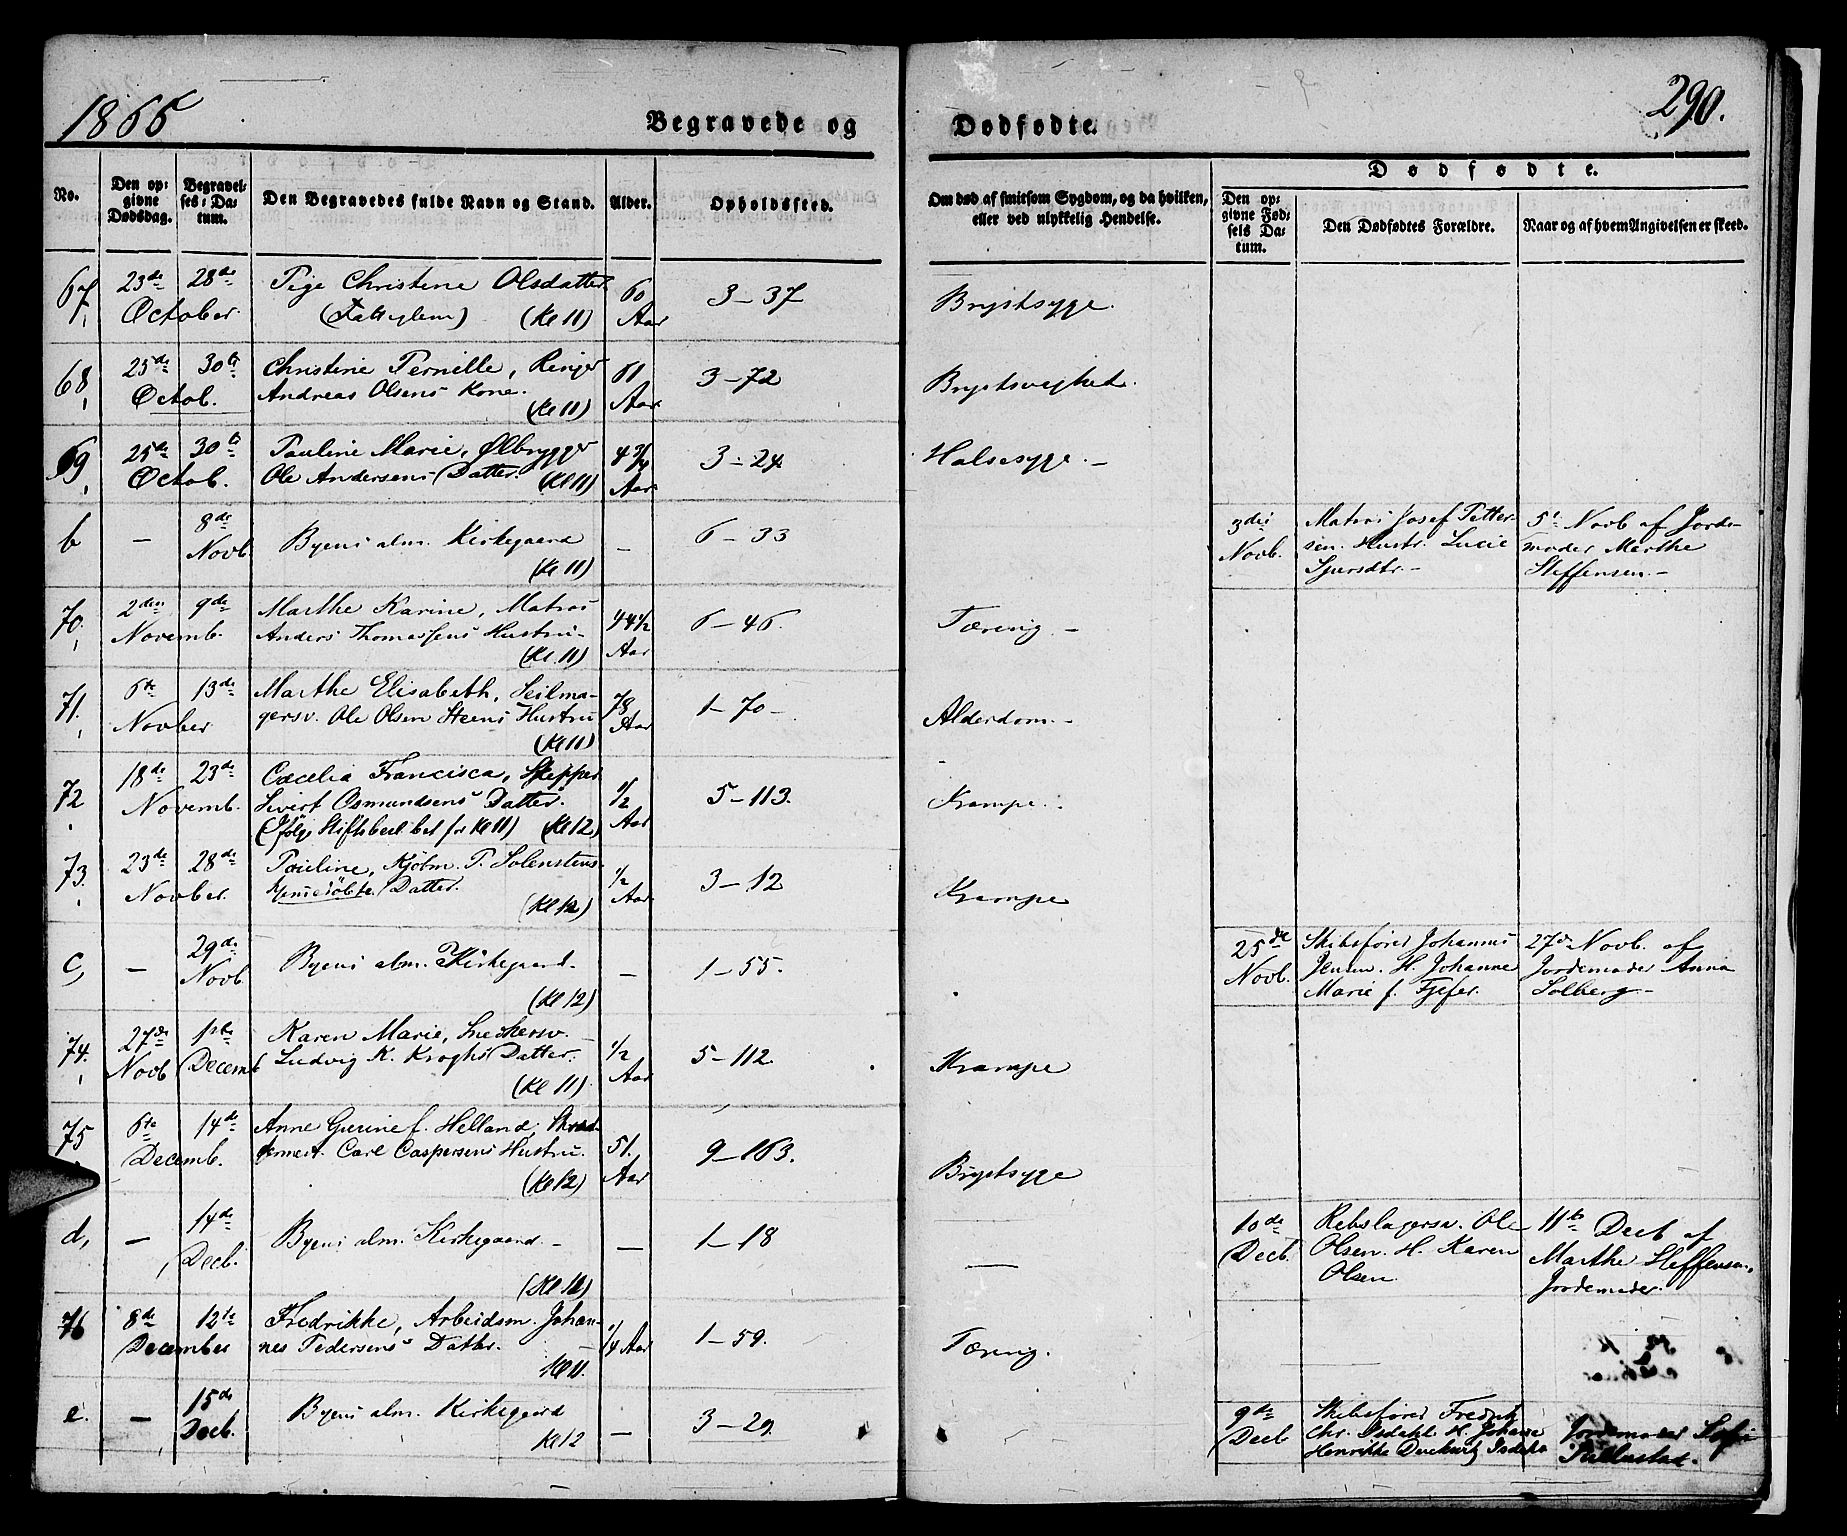 1865
Begravede og
Dødfødte.
290.
No.
Den op:
givne
Dødsdag.
Begravel:
ses: Da:
tum.
Den Begravedes fulde Navn og Stand.
Alder.
Opholdssted.
Om død af smitsom Sygdom, og da hvilken,
eller ved ulykkelig Hendelse.
Dødfødte.
Den op:
givne Fød:
sels Da:
tum.
Den Dødfødtes Forældre.
Naar og af hvem Angivelsen er skeed.
67, 23de 28de Pige Christene Olsdatter 60 3-37 Brystsyge.
October. (Fattiglem) (Kl 11) Aar
68, 25de 30te Christine Pernille, 61 3-72 Brystsvaghed.
Octob. Andreas Olsens Kone. (Kl 11) Aar
69, 25de 30te Pauline Marie, Ølbrygger 4 3/4 3-24. Halssyge.
Octob. Ole Andersens Datter. (Kl 11) Aar
b - 8de Byens alm. Kirkegaard - 6-33
Novb. (Kl 11)
3die Matros Josef Petter- 5te Novb af Jorde-
Novb. sen. Hustr. Lucie moder Marthe
Sjursdtr. Steffensen.
70, 2den 9de Marthe Karine, Matros 44 1/2 6-46. Tæring.
Novemb. Anders Thomassens Hustru. Aar
(Kl. 11)
71, 6te 13de Marthe Elisabeth, Seilma- 78 1-70- Alderdom.
Novber gersv. Ole Olsen Steens Hustru Aar
(Kl 11)
72, 18de 23de Cæcelia Francisca, Skipper 1/2 5-113. Krampe.
Novemb. Sivert Osmundsens Datter. Aar
(Ifølge Stiftsbesl. bet. for Kl 11) (Kl 12)
73, 23de 28de Pauline, Kjøbm. P. 1/2 3-12 Krampe
Novber. Datter. Aar
(Kl 12)
c, - 29de Byens alm. Kirkegaard. - 1-55.
Novb. (Kl 12)
25de Skibsfører Johannes 27de Novb. af
Novb. Jensen. H. Johanne Jordemoder Anna
Marie f. Solberg
74, 27de 1ste Karen Marie, Snedkersv. 1/2 5-112. Krampe
Novb Decemb Ludvig K. Kroghs Datter. Aar
(Kl 11)
75 6te 14de Anne Gurine f. Helland, 51. 9-163. Brystsyge
Decemb. Carl Caspersens Hustru. Aar
(Kl 12)
d, - 14de Byens alm. Kirkegaard. - 1-18
Decb.
10de Rebslagersv. Ole 11te Decb af
Decb. Olsen. H. Karen Marthe Steffensen,
Olsen Jordemoder.
76 8de 12te Fredrikke, Arbeidsm. Johan- 1/4 Aar 1-59. Tæring.
December nes Pedersens Datter.
Kl 11.
e. - 15de Byens alm. Kirkegaard - 3-29.
Decb. Kl 12
9de Skibsfører Fredrik Jordemoder
Decb Chr. Isdahl H. Johanne
Henrikke Isdahl